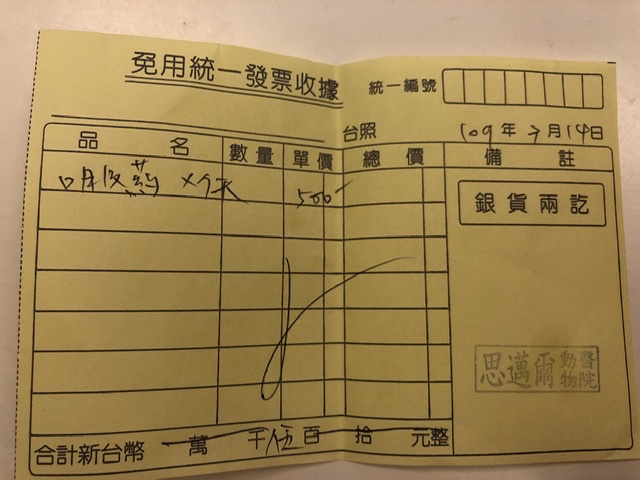 免用統一發票收據
統一編號
台照
109年7月14日
品名 數量 單價 總價 備註
口服藥 500-
銀貨兩訖
思邁爾動物醫院
合計新台幣 萬 仟伍百 拾 元整